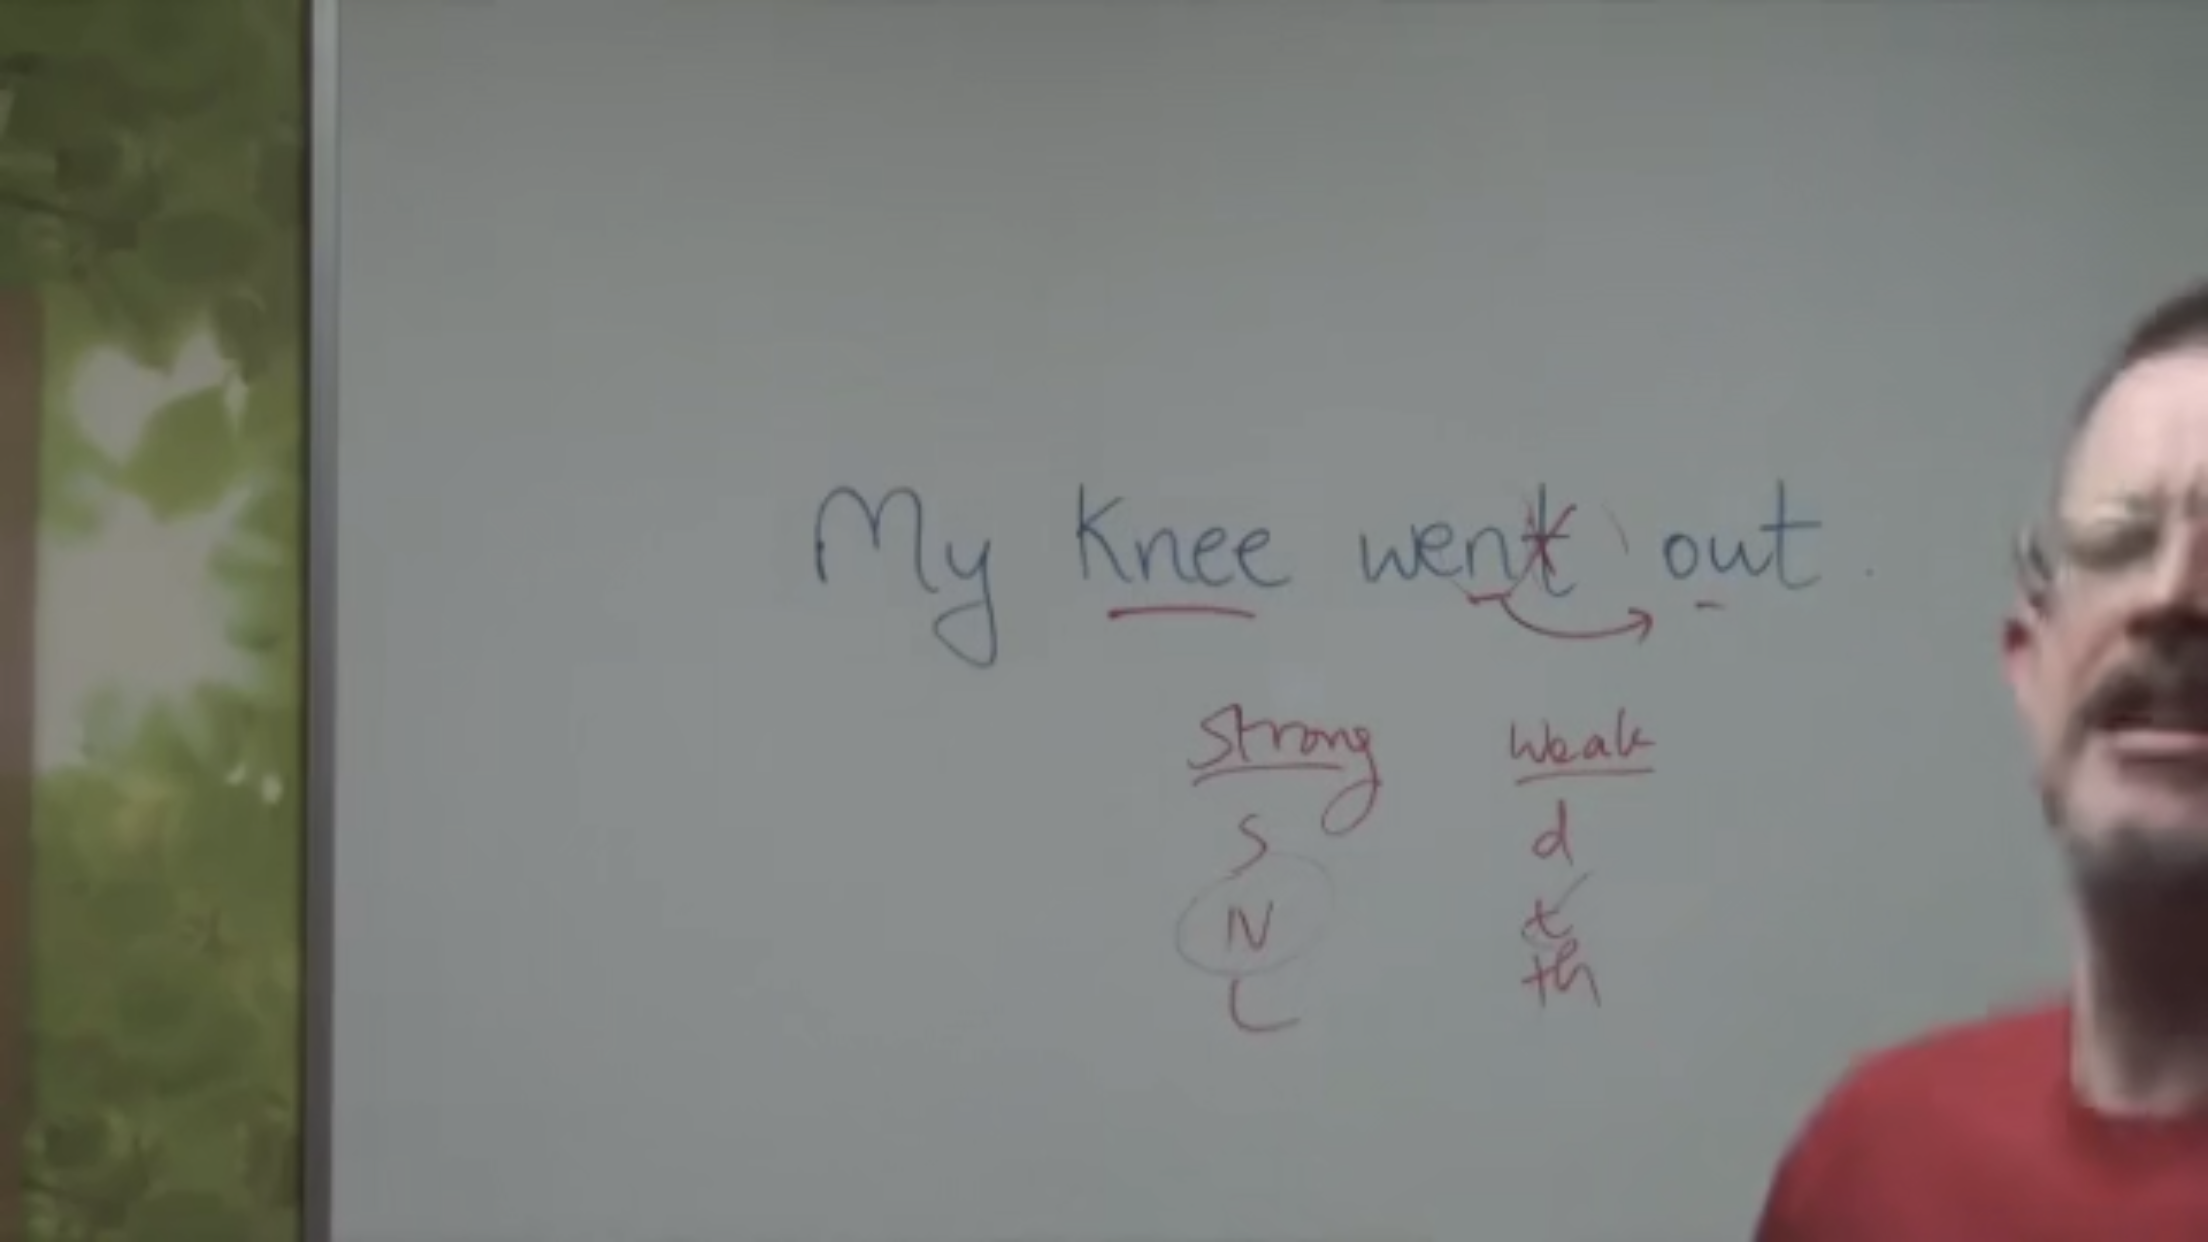 My Knee went out.
Strong Weak
S d
N t
L th